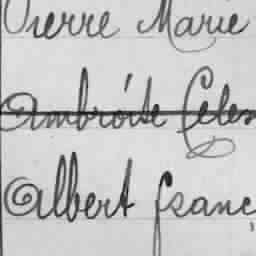 Pierre Marie
Ambroise Celes
Albert Franç